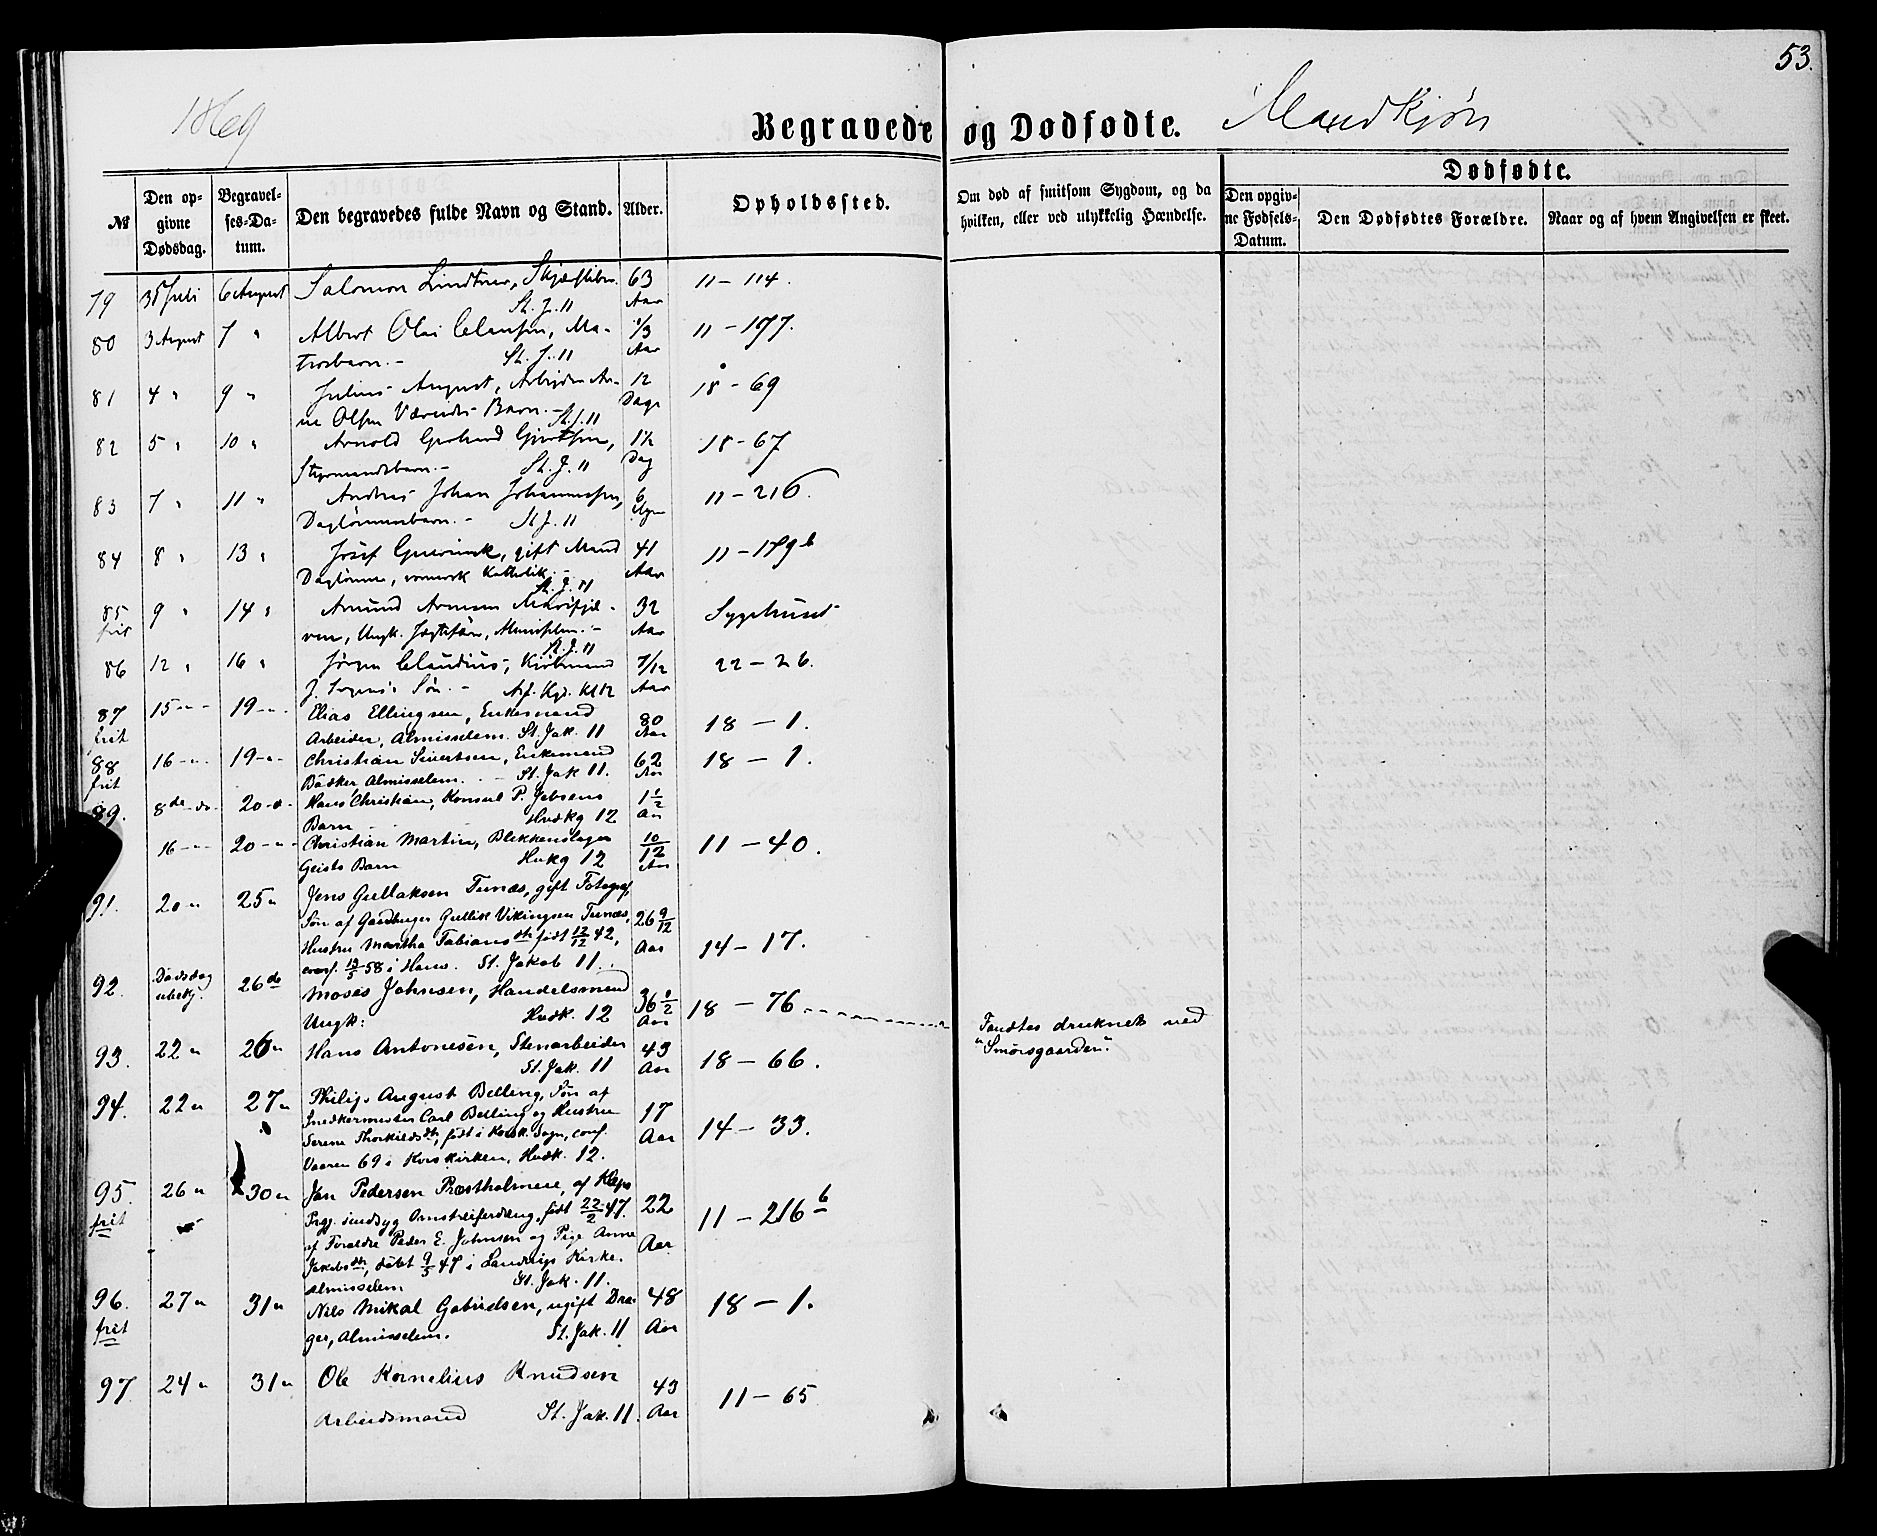 53.
1869
Begravede og Dødfødte. Mandkjøn
№
Den opgivne Dødsdag.
Begravelses-Datum.
Den begravedes fulde Navn og Stand.
Alder.
Opholdssted.
Om død af smitsom Sygdom, og da hvilken, eller ved ulykkelig Hændelse.
Dødfødte.
Den opgivne Fødsels-Datum.
Den Dødfødtes Forældre.
Naar og af hvem Angivelsen er skeet.
79 31 Juli 6 August Salomon Lindtner, 63 11 - 114.
St. J. 11 Aar
80 3 August 7 " Albert Olai Clausen, Ma- 1/3 11 - 177.
trosbarn. - St. J. 11 Aar
81 4 " 9 " Julius August, Arbeider Ar- 12 18 - 69
ne Olsen Barn. - St. J. 11 Dage
82 5 " 10 " Arnold Gerhard Gjertsen, 1½ 18 - 67
Styrmandsbarn. - St. J. 11 Dag
83 7 " 11 " Andreas Johan Johannessen, 6 11 - 216.
Daglønnerbarn. - St. J. 11
84 8 " 13 " Josef gift Mand 41 11 - 179 b
Daglønner, romersk Katholik. - St. J. 11 Aar
85 9 " 14 " Amund Arnesen 32 Sygehuset
frit Ungk. St. J. 11 Aar
86 12 " 16 " Jørgen Claudius, Kjøbmand 7/12 22 - 26.
J. Søn. - Aar
87 15 " 19 " Elias Ellingsen, Enkemand 80 18 - 1.
frit Arbeider, Almisselem. St. Jak. 11 Aar
88 16 " 19 " Christian Sivertsen, Enkemand 62 18 - 1.
frit Bødker Almisselem. - St. Jak 11. Aar
89. 8de do 20 Hans Christian, Konsul P. Jebsens 1½
Barn Hvdkg 12 Aar
16 " 20 " Christian Martin, Blikkenslager 10/12 11 - 40.
Geists Barn Hvkg 12 Aar
91. 20 " 25 " Jens Gullaksen Tunæs, gift Fotograf,
Søn af Gaardbruger Gullik Vikingsen Tunæs, 26 9/12
Hustru Martha Fabiansdtr født 12/12 42, Aar 14 - 17.
conf. 58 i Haus. St. Jakob 11.
92. Dødsdag 26de Moses Johnsen, Handelsmand 36 ½ 18 - 76 Fandtes druknet ved
ubekj. Ungk: Hvdk. 12 Aar "Smørsgaarden".
93. 22 " 26 " Hans Antonesen, Stenarbeider 43 18 - 66.
St. Jak. 11 Aar
94. 22 " 27 " Philip August Belling, Søn af
Snedkermester Carl Belling og Hustru 17
Serene Thorkildsdtr, født i Korsk. Sogn, conf. Aar 14 - 33.
Vaaren 69 i Korskirken, Hvdk. 12.
95. 26 " 30 " Jan Pedersen Præstholmen, af Klep
frit Prgj. sindsyg Omstreiferdreng, født 22/2 47. 22 11 - 216 b
af Foraldre Peder E. Johnsen og Pige Anne Aar
Jakobsdtr, døbt 9/5 47 i Kirke.
Almisselem St. Jak. 11.
96. 27 " 31 " Nils Mikal Gabrielsen, ugift Dra- 48 18 - 1.
frit ger, Almisselem. St. Jak. 11 Aar
97. 24 " 31 " Ole Kornelius Knudsen 43 11 - 65
Arbeidsmand St. Jak. 11. Aar